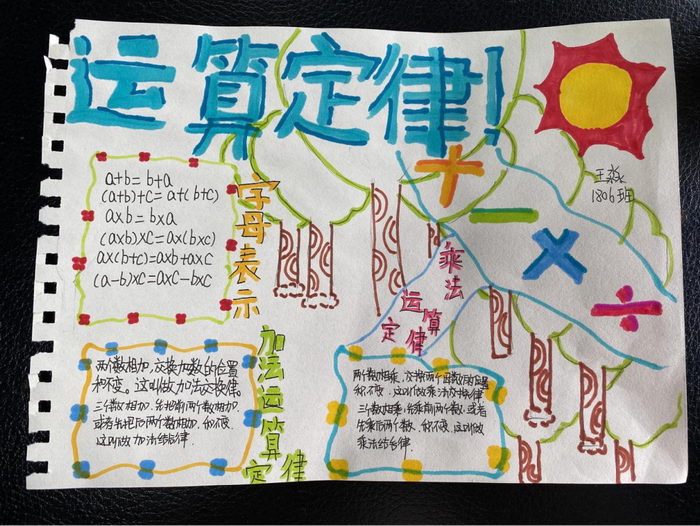 运算定律!
王淼
1806班
a+b=b+a
(a+b)+c=a+(b+c)
a×b=b×a
(a×b)×c=a×(b×c)
a×(b+c)=a×b+a×c
(a-b)×c=a×c-b×c
字母表示
+
−
×
÷
乘法
运算
定律
两个数相加,交换加数的位置
和不变。这叫做加法交换律。
三个数相加,先把前两个数相加,
或者先把后两个数相加,和不变,
这叫做加法结合律.
加法运算
定律
两个数相乘,交换两个因数的位置
积不变,这叫做乘法交换律
三个数相乘,先乘前两个数,或者
先乘后两个数,积不变,这叫做
乘法结合律.